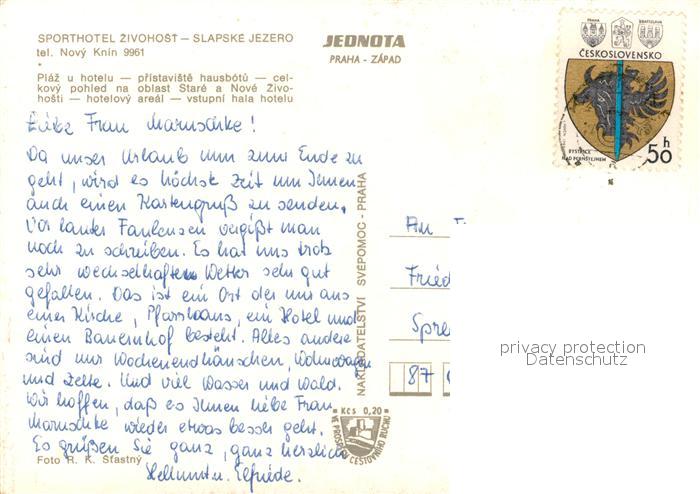 SPORTHOTEL ŽIVOHOŠŤ — SLAPSKÉ JEZERO
tel. Nový Knín 9961
Pláž u hotelu — přístaviště hausbótů — cel-
kový pohled na oblast Staré a Nové Živo-
hošti — hotelový areál — vstupní hala hotelu
JEDNOTA
PRAHA - ZÁPAD
PRAHA
BRATISLAVA
ČESKOSLOVENSKO
BYSTŘICE
NAD PERNŠTEJNEM
50 h
Liebe Frau Maruschke!
Da unser Urlaub nun zum Ende zu
geht, wird es höchste Zeit um Ihnen
auch einen Kartengruß zu senden.
Vor lauter Faulensen vergißt man
noch zu schreiben. Es hat uns trotz
sehr wechselhaften Wetter sehr gut
gefallen. Das ist ein Ort der nur aus
einer Kirche, Pfarrhaus, ein Hotel und
einen Bauernhof besteht. Alles andere
sind nur Wochenendhäuschen, Wohnwagen
und Zelte. Und viel Wasser und Wald.
Wir hoffen, daß es Ihnen liebe Frau
Maruschke wieder etwas besser geht.
Es grüßen Sie ganz, ganz herzlich
Hellmut u. Elfriede.
Foto R. K. Šťastný
NAKLADATELSTVÍ SVÉPOMOC - PRAHA
Kcs 0,20
VE PROSPĚCH CESTOVNÍHO RUCHU
An
Fried
Spre
87
privacy protection
Datenschutz